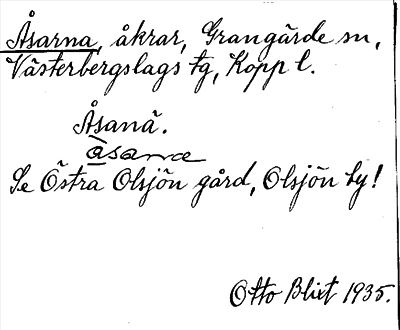 Åsarna, åkrar, Grangärde sn,
Västerbergslags tg, Kopp l.
Åsanä.
åsanæ
Se Östra Olsjön gård, Olsjön by!
Otto Blixt 1935.